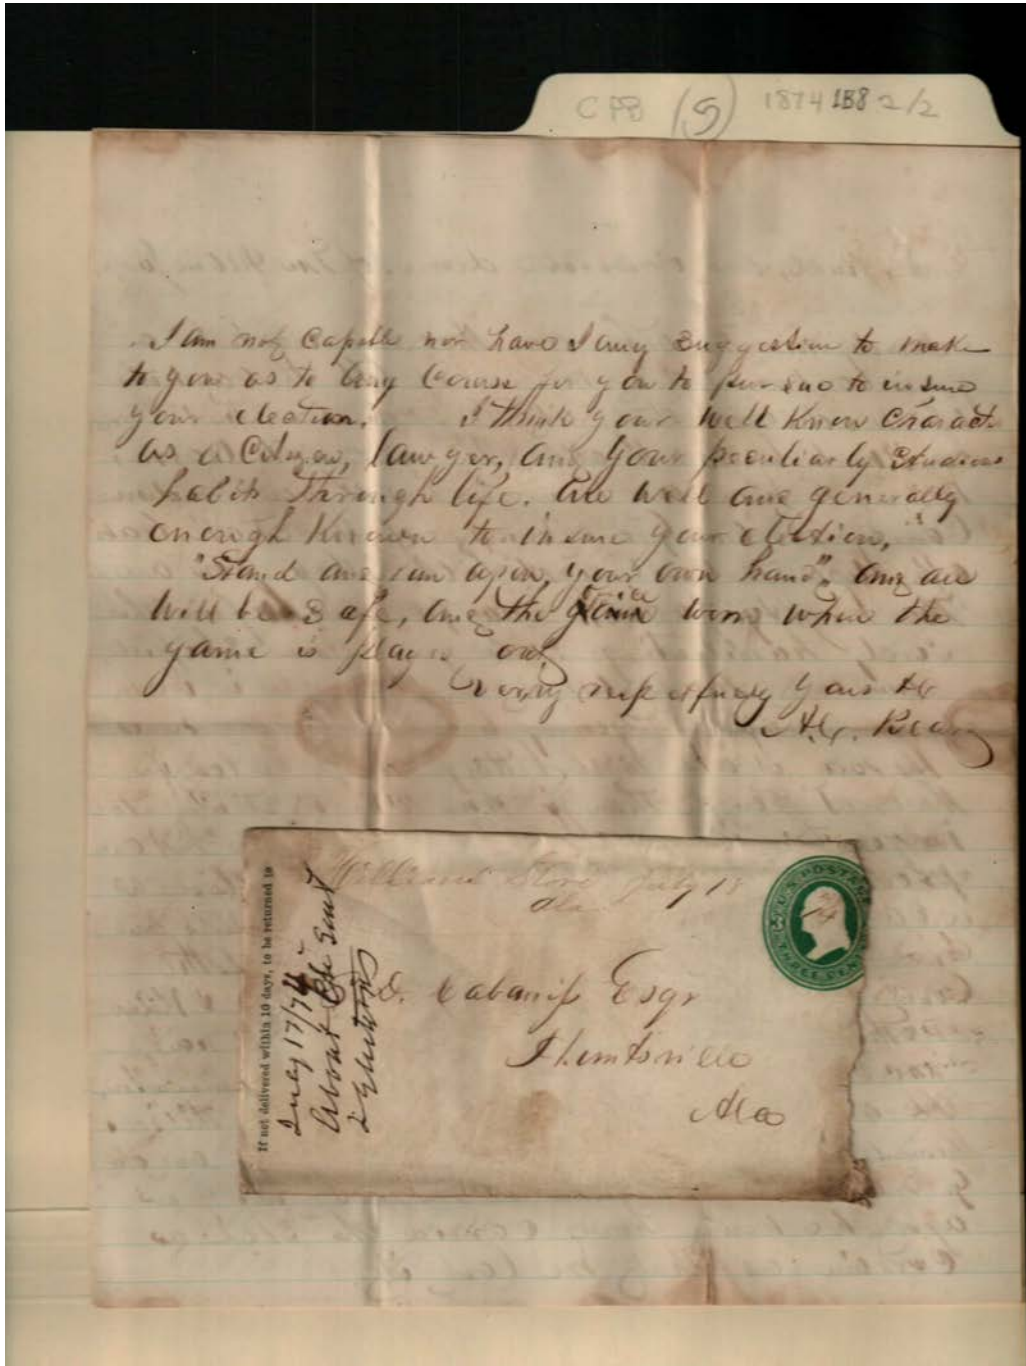 CPB (S) 1874 1B8 2/2
I am not Capable nor have I any Suggestion to make
to you as to any Course for you to pursue to insure
your election. I think your Well Known Charact
as a Citizen, lawyer, and your peculiarly Studious
habits through life. Are well and generally
enough Known to insure your election,
"Stand and run upon, your own hand", and all
will be Safe, and the game won when the
game is played out,
Very respectfully yours &c
Williams Store July 13
Ala
U.S. POSTAGE
THREE CENTS
If not delivered within 10 days, to be returned to
July 17/74
About
Election
S. D. Cabaniss Esqr
Huntsville
Ala